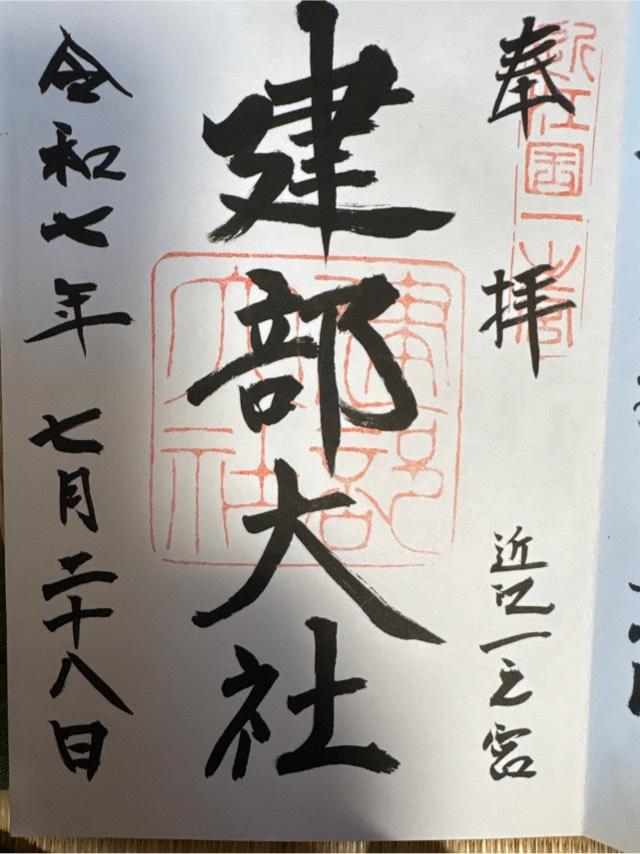 奉拝
近江国一之宮
近江一之宮
建部大社
建部大社
令和七年 七月二十八日